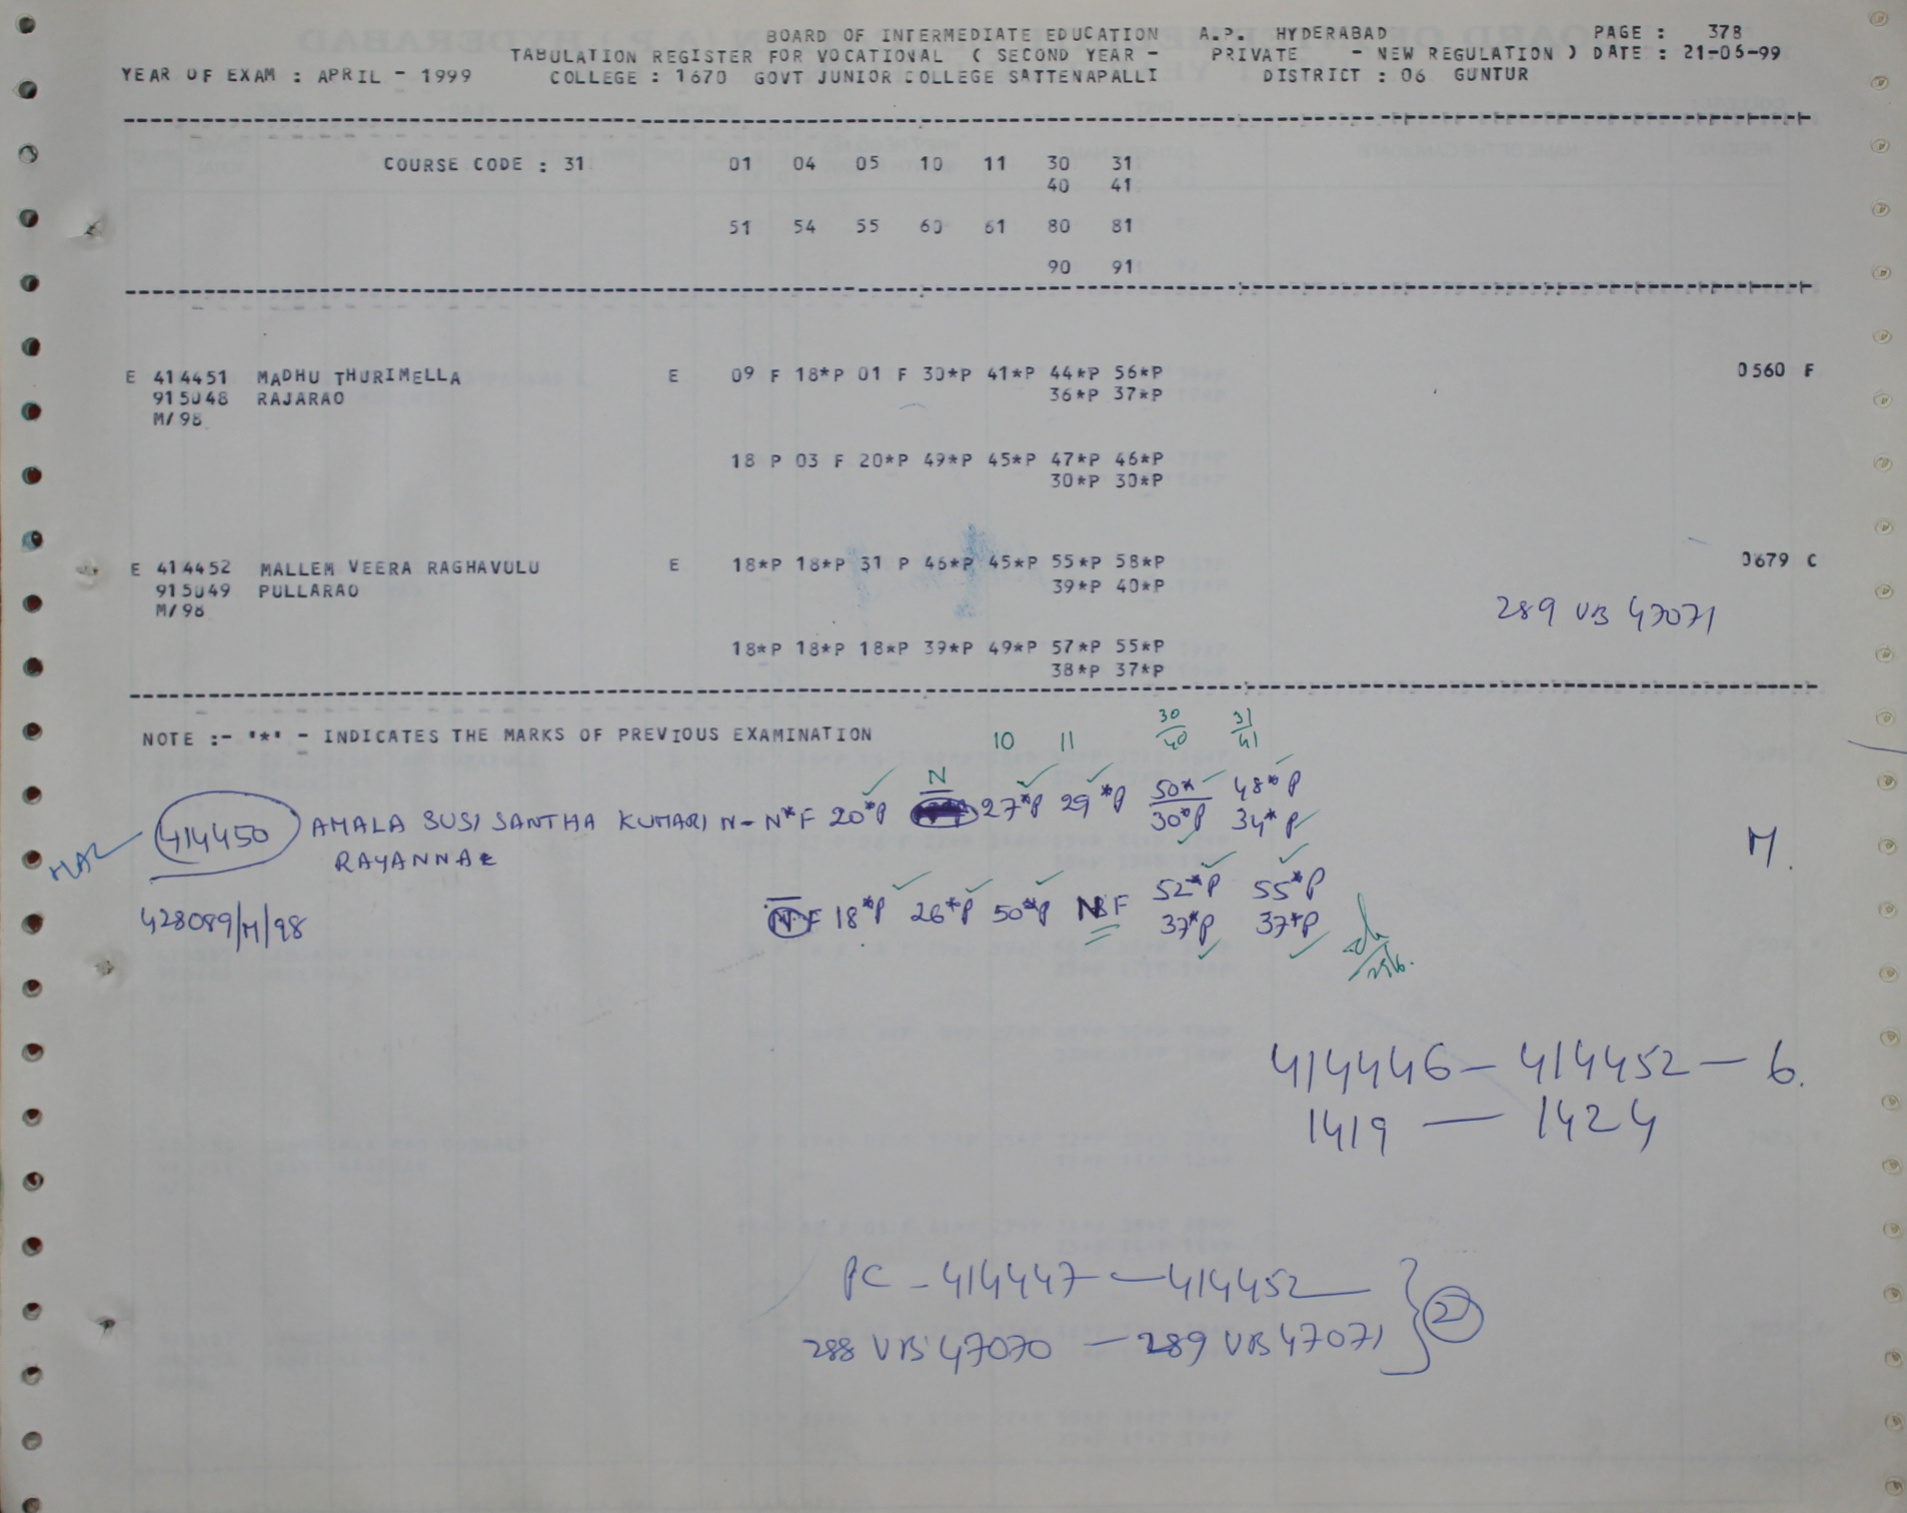 BOARD OF INTERMEDIATE EDUCATION A.P. HYDERABAD PAGE : 378
TABULATION REGISTER FOR VOCATIONAL ( SECOND YEAR - PRIVATE - NEW REGULATION ) DATE : 21-06-99
YEAR OF EXAM : APRIL - 1999 COLLEGE : 1670 GOVT JUNIOR COLLEGE SATTENAPALLI DISTRICT : 06 GUNTUR
COURSE CODE : 31 01 04 05 10 11 30 31
40 41
51 54 55 60 61 80 81
90 91
E 414451 MADHU THURIMELLA E 09 F 18*P 01 F 30*P 41*P 44*P 56*P 0560 F
915048 RAJARAO 36*P 37*P
M/98
18 P 03 F 20*P 49*P 45*P 47*P 46*P
30*P 30*P
E 414452 MALLEM VEERA RAGHAVULU E 18*P 18*P 31 P 46*P 45*P 55*P 58*P 0679 C
915049 PULLARAO 39*P 40*P
M/98 289 VB 47071
18*P 18*P 18*P 39*P 49*P 57*P 55*P
38*P 37*P
NOTE :- '*' - INDICATES THE MARKS OF PREVIOUS EXAMINATION
10 11 30/40 31/41
N
414450 AMALA SUSI SANTHA KUMARI N- N*F 20*P 27*P 29*P 50* 48*P
RAYANNA 30*P 34*P
M.
428089/M/98 N F 18*P 26*P 50*P N F 52*P 55*P
37*P 37*P
414446 - 414452 - 6.
1419 - 1424
PC - 414447 - 414452
288 VB 47070 - 289 VB 47071 } 2